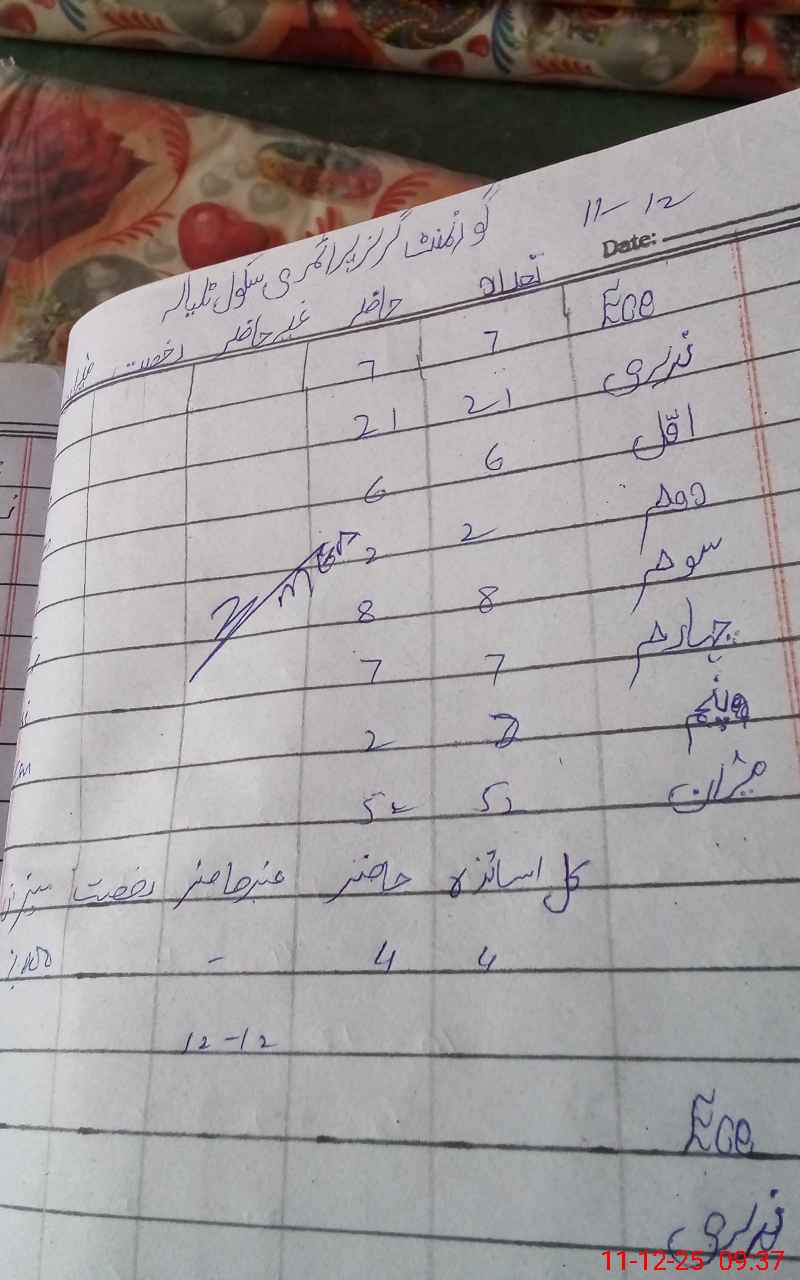 11-12
Date:
گورنمنٹ گرلز پرائمری سکول ٹلیالہ
تعداد حاضر غیر حاضر رخصت
Ece 7 7
نرسری 21 21
اوّل 6 6
دوم 2 2
سوم 8 8
چہارم 7 7
پنجم 2
میزان 52 52
کل اساتذہ حاضر غیر حاضر رخصت
4 4 -
12-12
Ece
نرسری
11-12-25 09:37